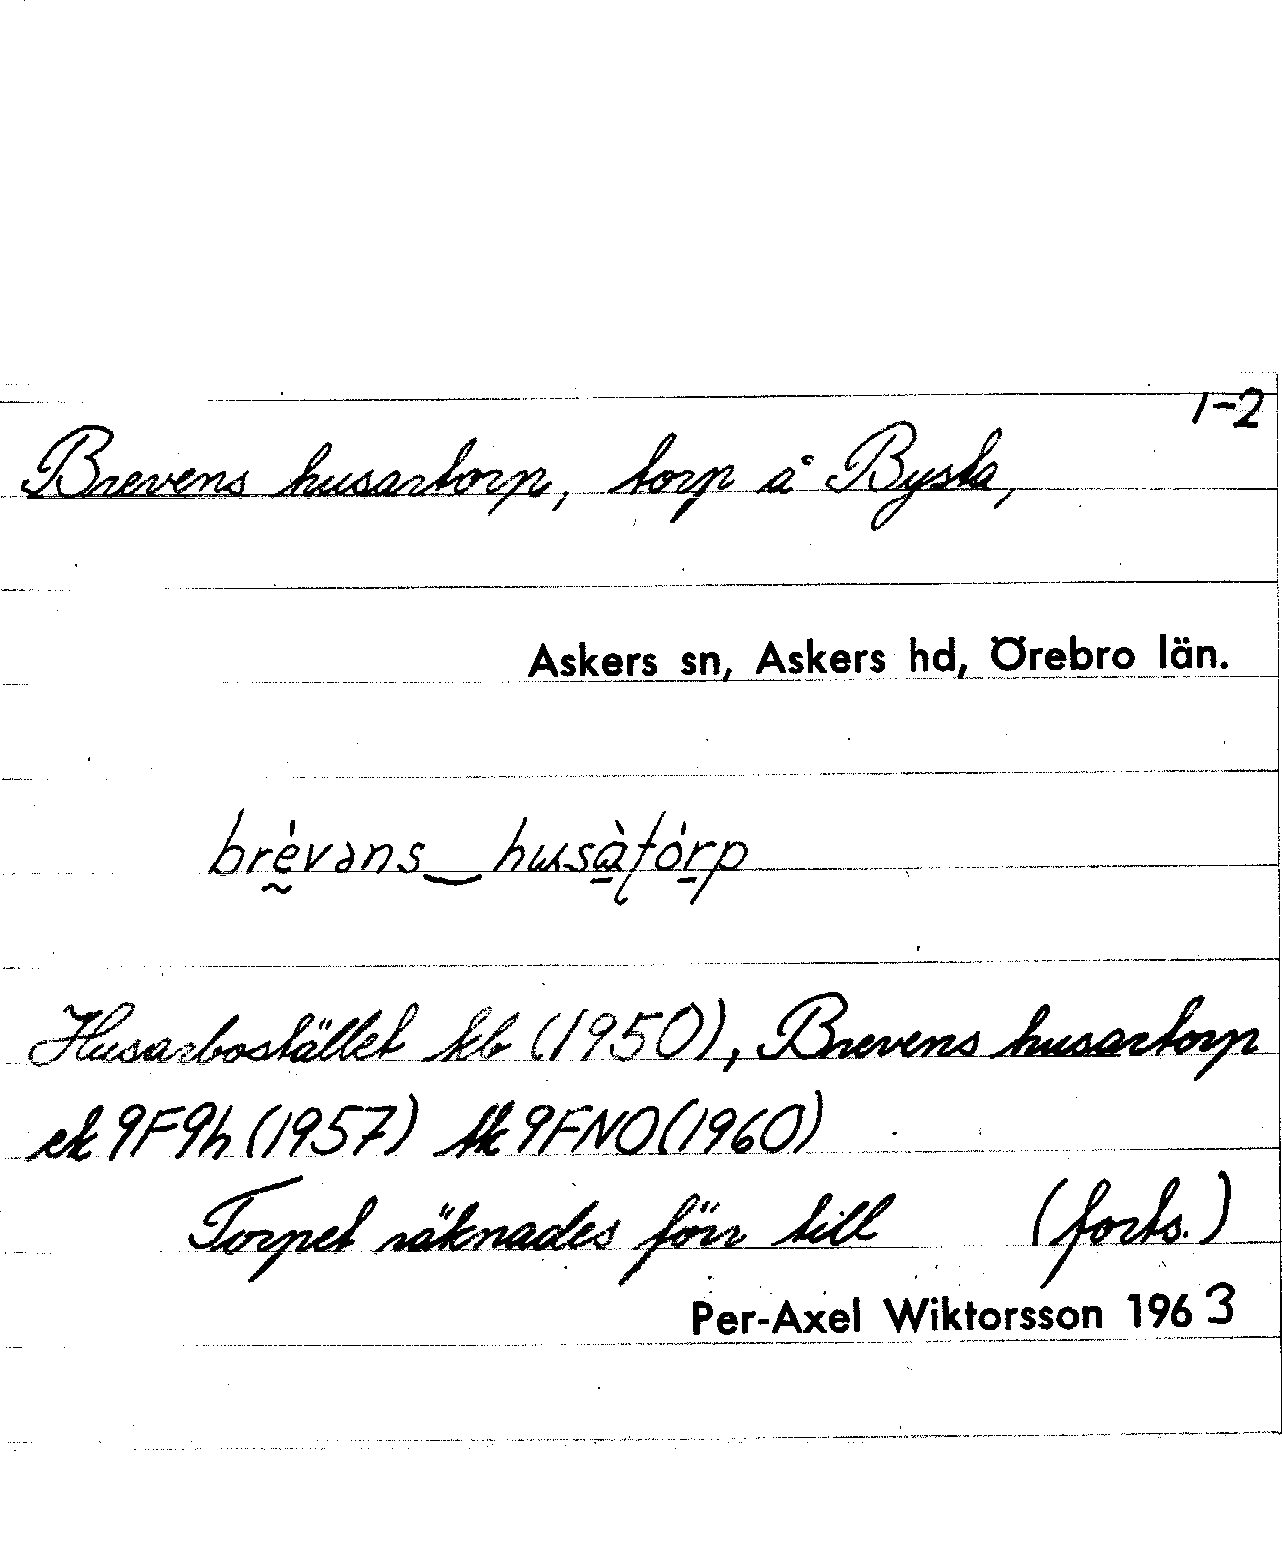 1-2
Brevens husartorp, torp å Bysta,
Askers sn, Askers hd, Örebro län.
brèvəns‿husàtórp
Husarbostället kb (1950), Brevens husartorp
ek 9F9h (1957) tk 9FNO (1960)
Torpet räknades förr till (forts.)
Per-Axel Wiktorsson 1963